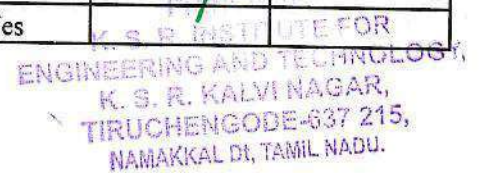 es
K. S. R. INSTITUTE FOR
ENGINEERING AND TECHNOLOGY,
K. S. R. KALVI NAGAR,
TIRUCHENGODE-637 215,
NAMAKKAL Dt, TAMIL NADU.